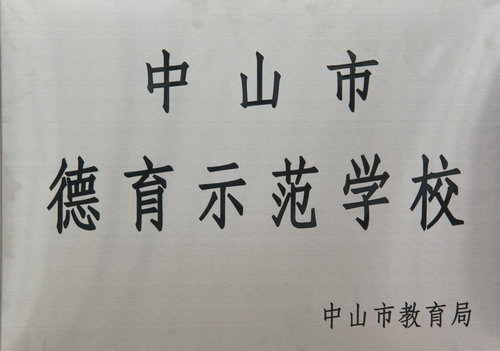 中山市
德育示范学校
中山市教育局